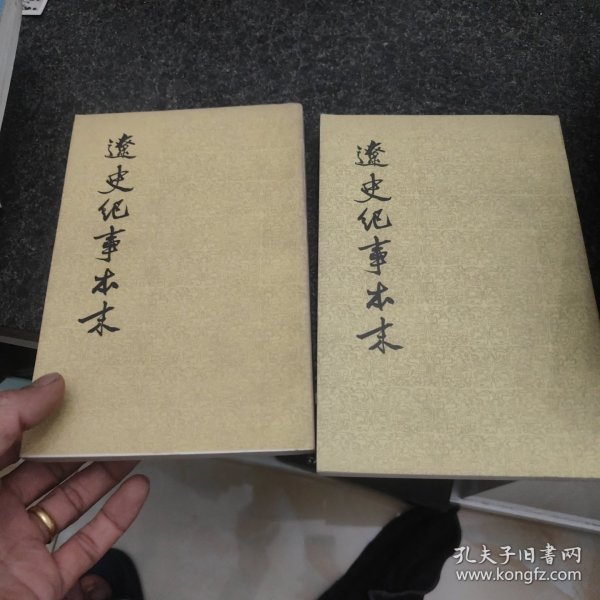 遼史纪事本末
遼史纪事本末
孔夫子旧书网
www.kongfz.com